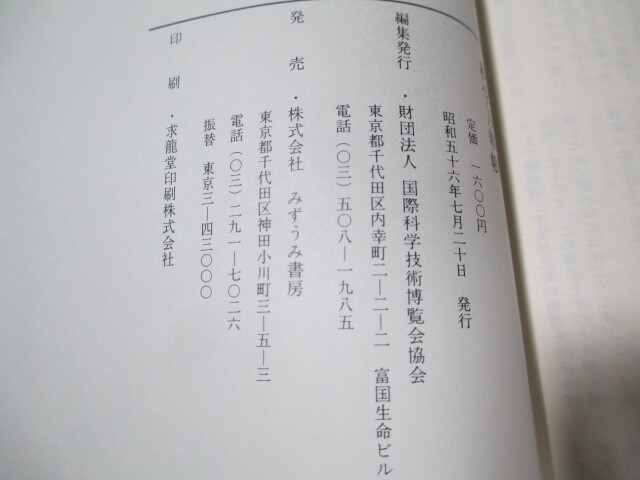 定価　一六〇〇円
昭和五十六年七月二十日　発行
編集発行・財団法人　国際科学技術博覧会協会
東京都千代田区内幸町二―二―二　富国生命ビル
電話(〇三)五〇八―一九八五
発売・株式会社　みずうみ書房
東京都千代田区神田小川町三―五―三
電話(〇三)二九一―七〇二六
振替　東京三―四三〇〇〇
印刷・求龍堂印刷株式会社